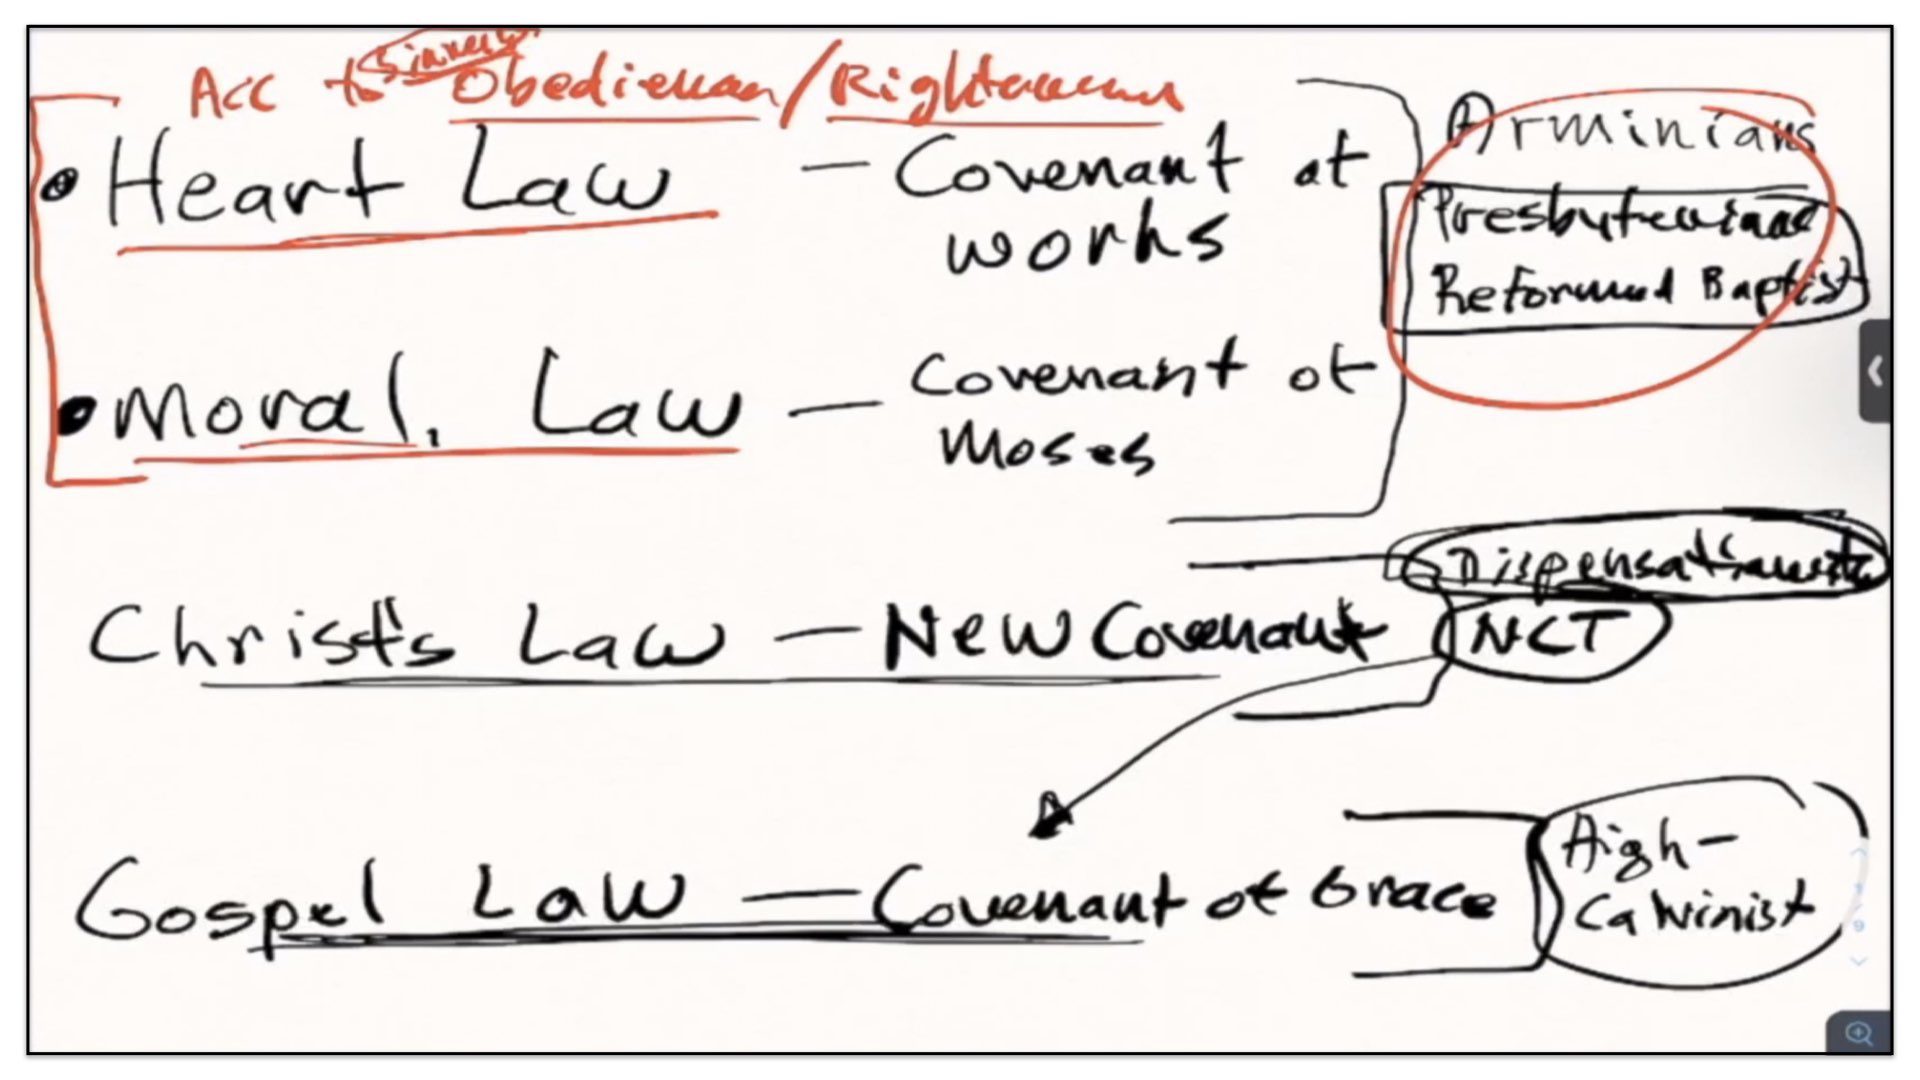 Acc to Obedience/Righteousness
• Heart Law — Covenant of
works
Arminians
Presbyterians
Reformed Baptist
• Moral. Law — Covenant of
Moses
Dispensationalists
Christ's Law — New Covenant
NCT
Gospel Law — Covenant of Grace
High-
Calvinist